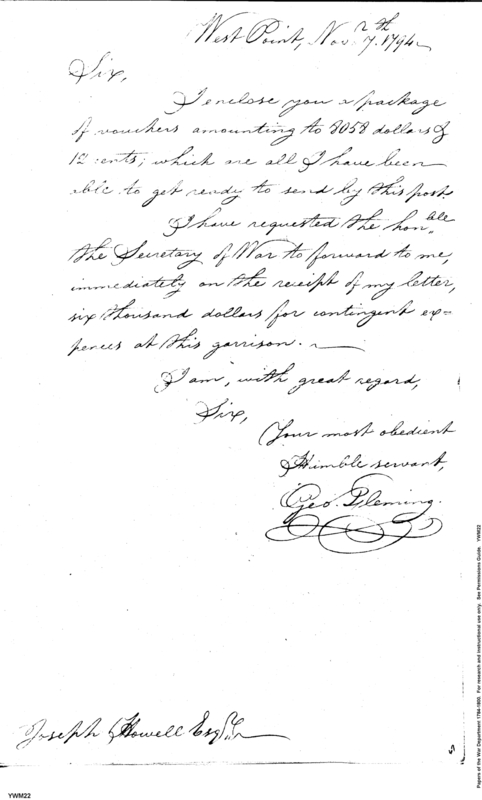 West Point, Nov. 7th. 1794.
Sir,
I enclose you a package
of vouchers amounting to 8058 dollars &
12 cents; which are all I have been
able to get ready to send by this post.
I have requested the hon.ble
the Secretary of War to forward to me,
immediately on the receipt of my letter,
six thousand dollars for contingent ex=
pences at this garrison.
I am, with great regard,
Sir,
Your most obedient
Humble servant,
Geo. Fleming.
Joseph Howell Esqr.
YWM22
Papers of the War Department 1784-1800. For research and instructional use only. See Permissions Guide. YWM22